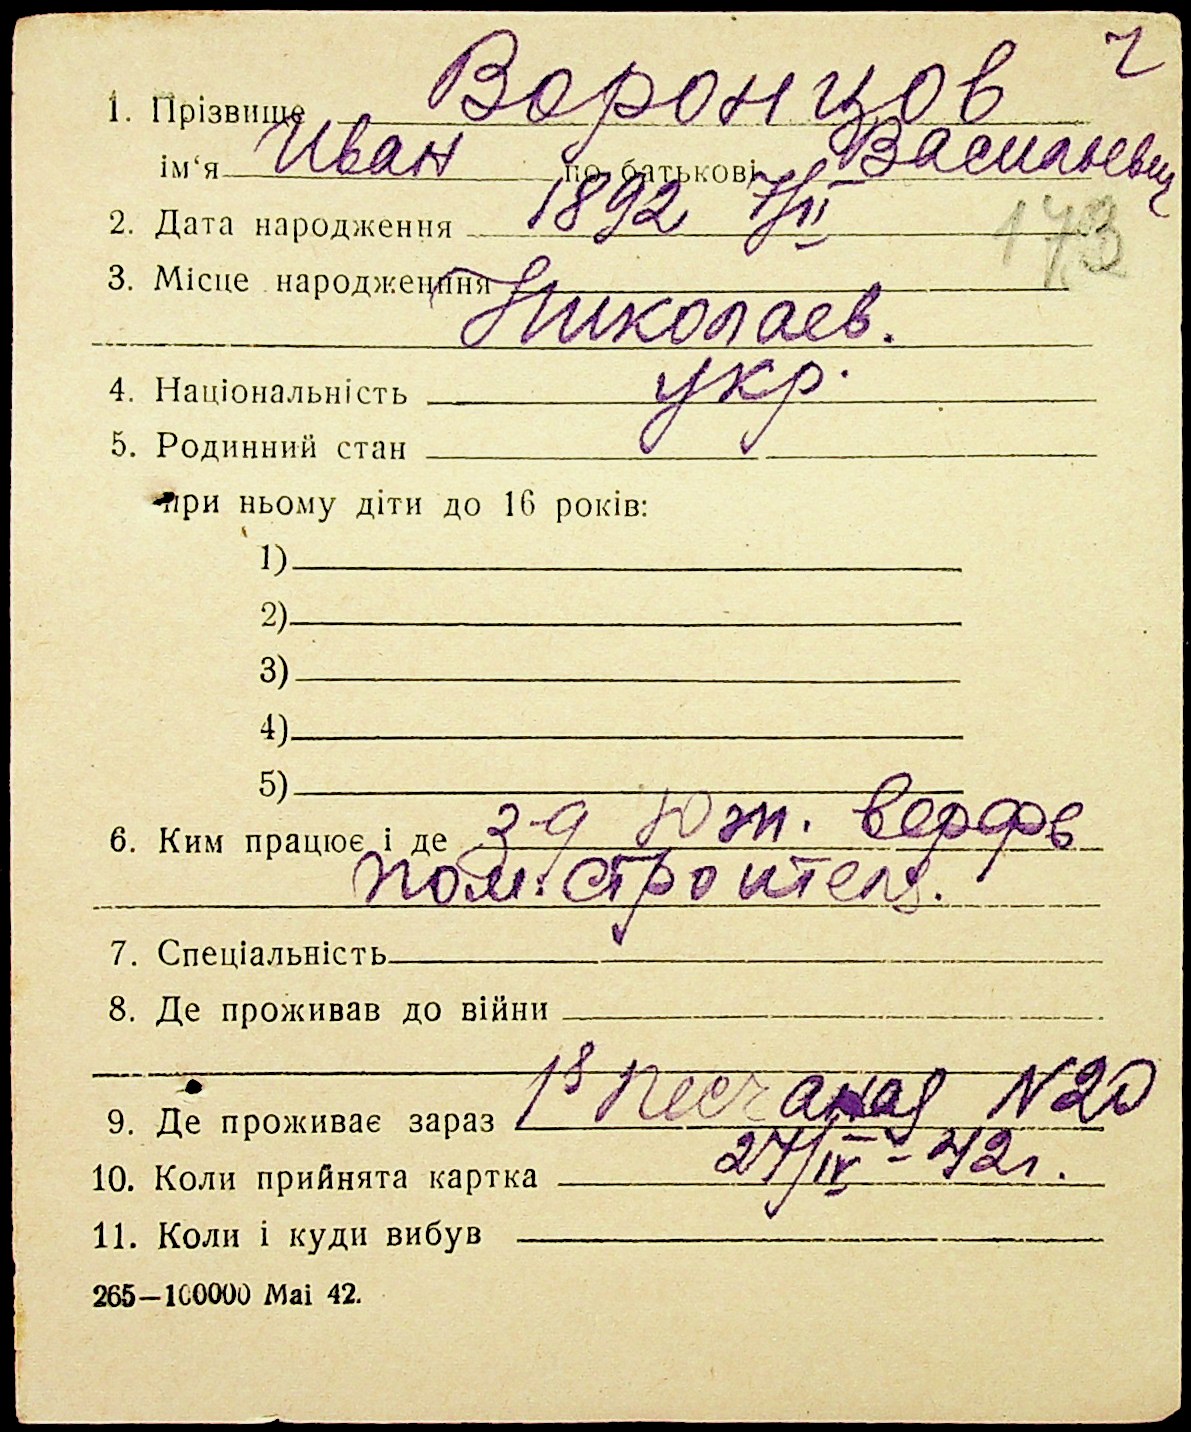 ч
1. Прізвище Воронцов
ім‘я Иван по батькові Васильевич
2. Дата народження 1892 7/II
173
3. Місце народження Николаев.
4. Національність укр.
5. Родинний стан
при ньому діти до 16 років:
1)
2)
3)
4)
5)
6. Ким працює і де з-д Юж. верфь
пом. строителя.
7. Спеціальність
8. Де проживав до війни
9. Де проживає зараз 18 Песчаная N 20
10. Коли прийнята картка 27/IV - 42 г.
11. Коли і куди вибув
265—100000 Маі 42.